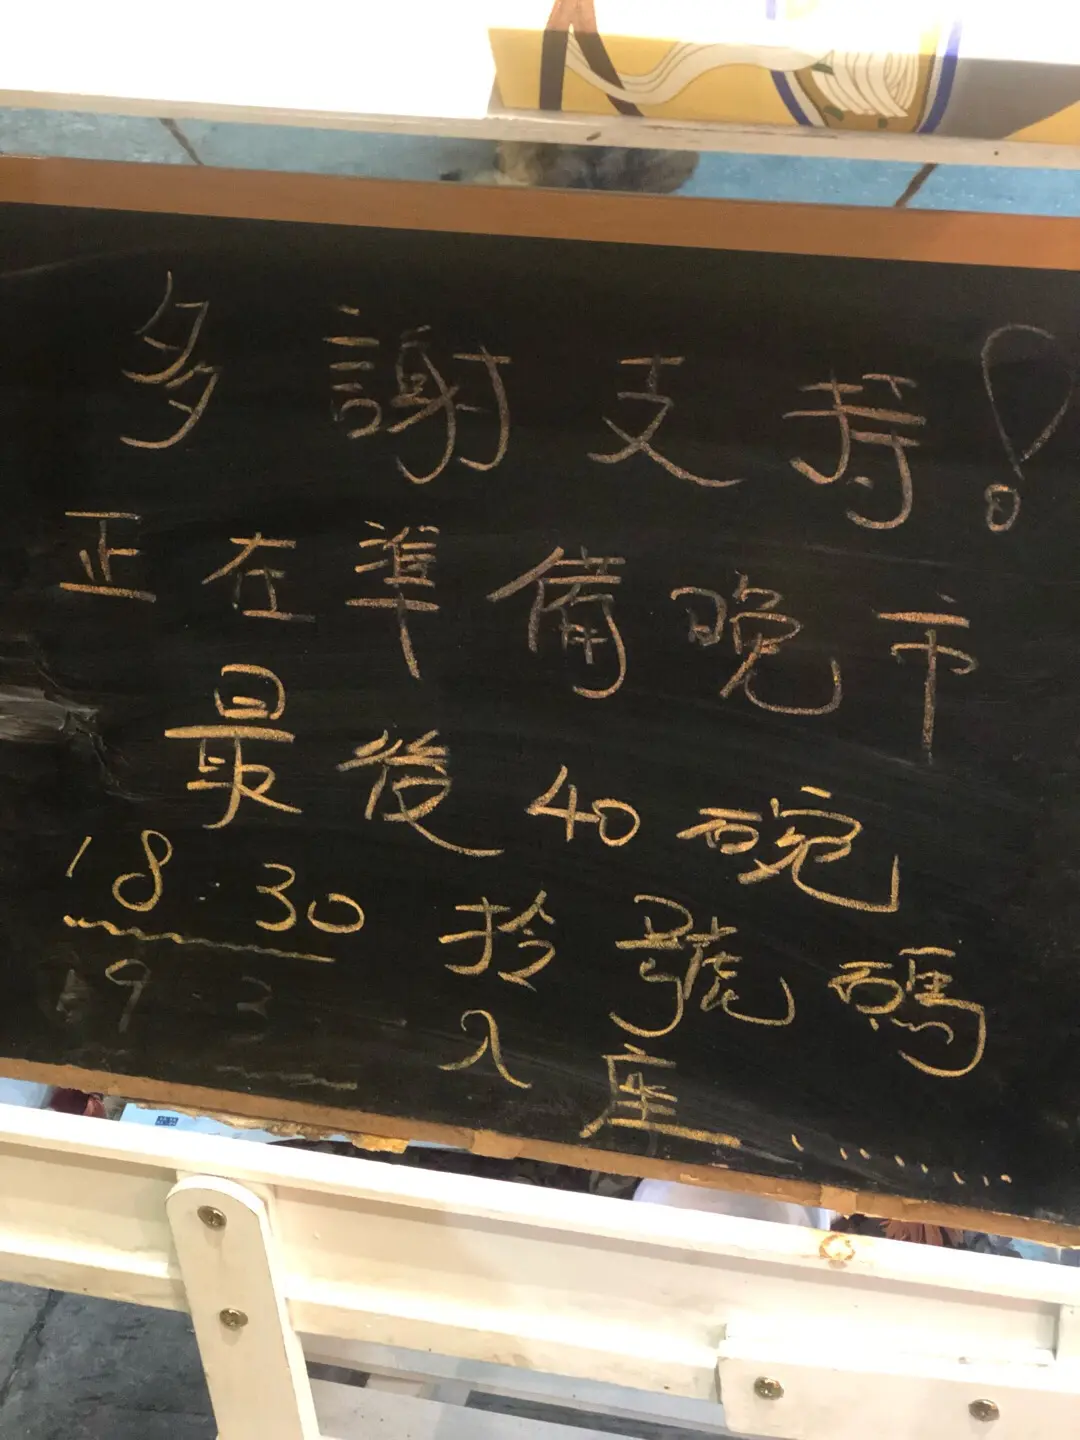 多謝支持!
正在準備晚市
最後40碗
18:30 拎號碼
入座........